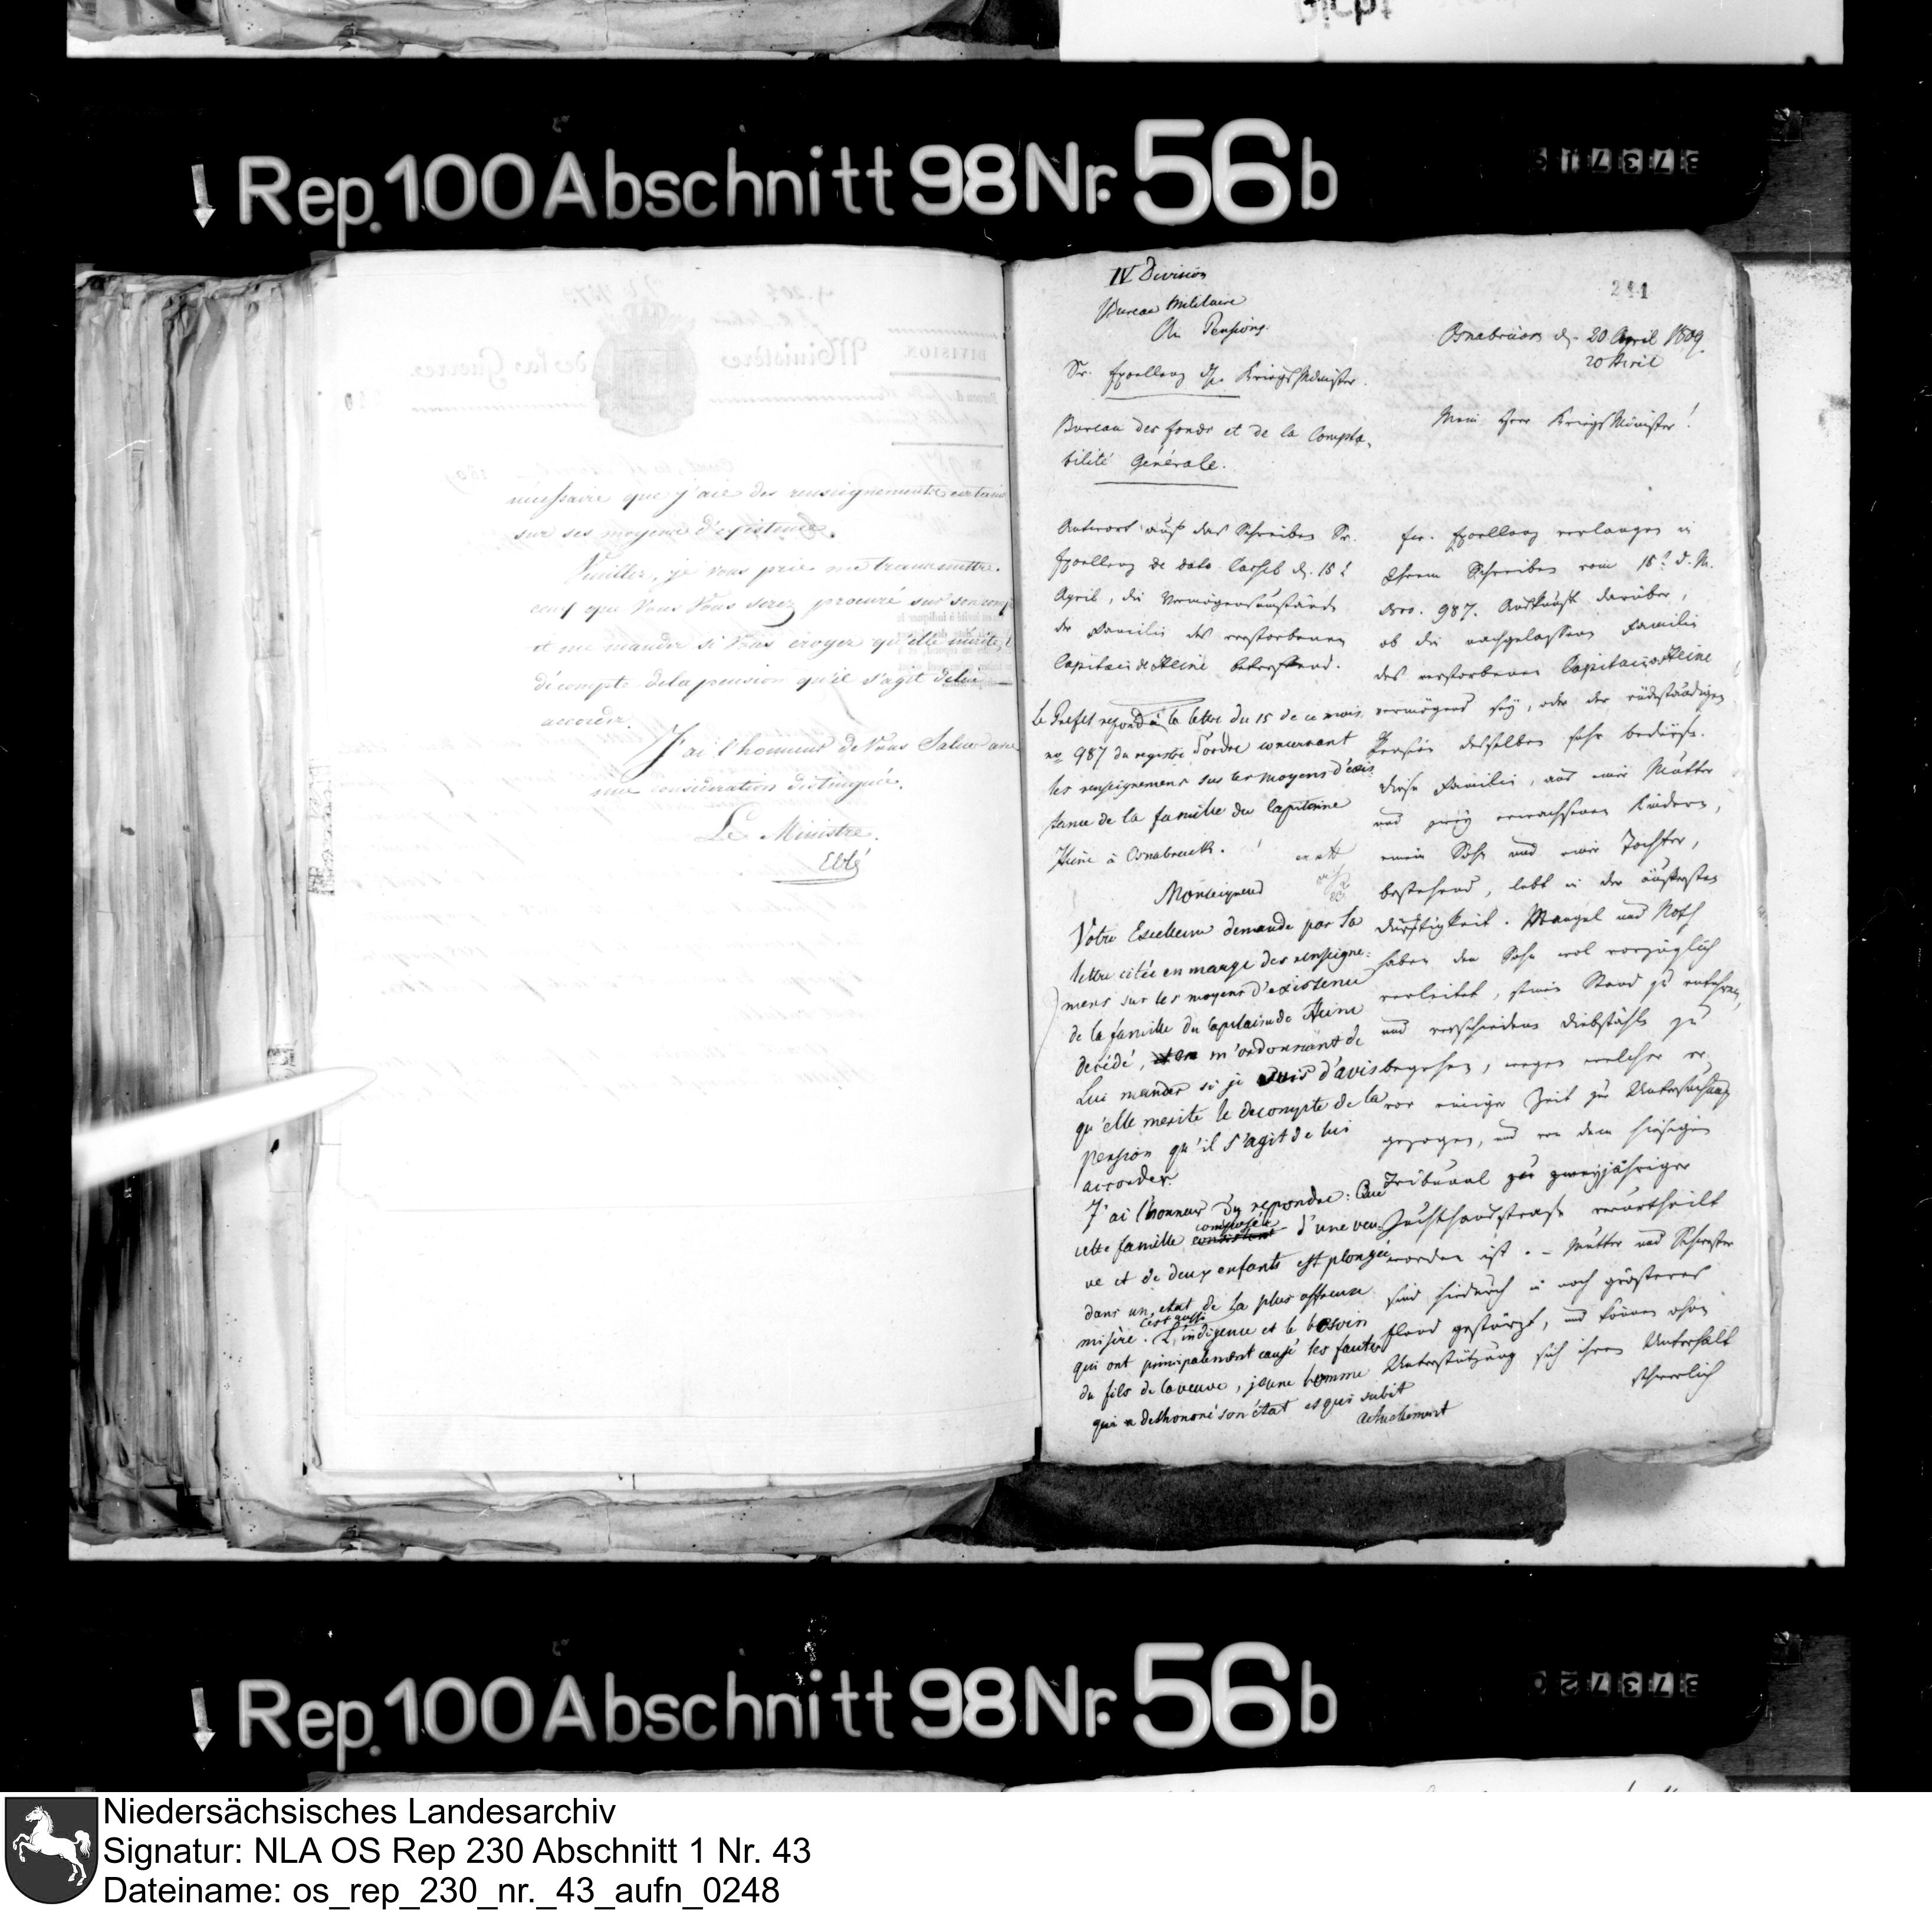 nicht
Rep. 100 Abschnitt 98 Nr. 56b
nécessaire que j'aie des renseignements certains
sur ses moyens d'existence.
Veuillez, je vous prie me transmettre
ceux que Vous Vous serez procuré sur son compte
et me mander si Vous croyez qu'elle mérite le
décompte de la pension qu'il s'agit de lui
accorder.
J'ai l'honneur de Vous Saluer avec
une considération distinguée.
Le Ministre.
Eblé
IV Division
Bureau Militaire
Des Pensions.
Sr. Excellenz der Kriegs Minister.
Bureau des fonds et de la Compta-
bilité Générale.
241
Osnabrück d. 20 April 1809.
20 Avril
Mein Herr Kriegs Minister!
Antwort auf das Schreiben Sr.
Excellenz de dato Cassel d. 15t
April, die Vermögensumstände
der Familie des verstorbenen
Capitain de Heine betreffend.
Le Préfet repond à la lettre du 15 de ce mois
no 987 du registre d'ordre concernant
les renseignemens sur les moyens d'exis
tence de la famille du Capitaine
Heine à Osnabruck.
Monseigneur
Votre Excellence demande par Sa
lettre citée en marge des renseigne-
mens sur les moyens d'existence
de la famille du Capitaine de Heine
décédé, et en m'ordonnant de
Lui mander si je suis d'avis
qu'elle merite le decompte de la
pension qu'il s'agit de lui
accorder.
J'ai l'honneur d'y repondre: Que
cette famille consistant composée d'une veu-
ve et de deux enfants est plongée
dans un etat de la plus affreuse
misère. C'est aussi L'indigence et le besoin
qui ont principalement causé les fautes
du fils de la veuve, jeune homme
qui a deshonoré son état et qui subit
actuellement
Ew. Excellenz verlangen in
Ihrem Schreiben vom 15t d. M.
Nro. 987. Auskunft darüber,
ob die nachgelassene Familie
des verstorbenen Capitain de Heine
vermögend sey, oder der rückständigen
Pension desselben sehr bedürfe.
Diese Familie, aus einer Mutter
und zwey erwachsenen Kindern,
einem Sohn und einer Tochter,
bestehend, lebt in der äußersten
Dürftigkeit. Mangel und Noth
haben den Sohn wol vorzüglich
verleitet, seinen Stand zu entehren,
und verschiedene Diebstähle zu
begehen, wegen welcher er
vor einiger Zeit zur Untersuchung
gezogen, und von dem hiesigen
Tribunal zu zweyjähriger
Zuchthausstrafe verurtheilt
worden ist. – Mutter und Schwester
sind hiedurch in noch größeres
Elend gestürzt, und können ohne
Unterstützung sich ihren Unterhalt
schwerlich
Rep. 100 Abschnitt 98 Nr. 56b
Niedersächsisches Landesarchiv
Signatur: NLA OS Rep 230 Abschnitt 1 Nr. 43
Dateiname: os_rep_230_nr._43_aufn_0248